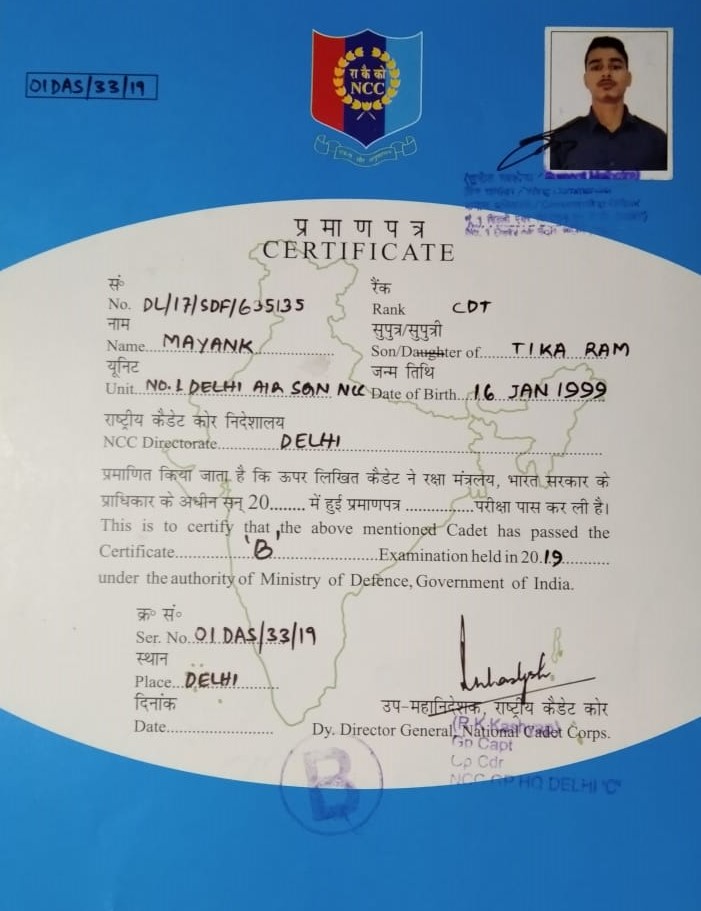 01DAS/33/19
रा कै को
NCC
प्रमाणपत्र
CERTIFICATE
सं॰ रैंक
No. DL/17/SDF/635135 Rank CDT
नाम सुपुत्र/सुपुत्री
Name... MAYANK Son/Daughter of... TIKA RAM
यूनिट जन्म तिथि
Unit. NO. 1 DELHI AIR SQN NCC Date of Birth... 16 JAN 1999
राष्ट्रीय कैडेट कोर निदेशालय
NCC Directorate... DELHI
प्रमाणित किया जाता है कि ऊपर लिखित कैडेट ने रक्षा मंत्रलेय, भारत सरकार के
प्राधिकार के अधीन सन् 20........ में हुई प्रमाणपत्र ...............परीक्षा पास कर ली है।
This is to certify that the above mentioned Cadet has passed the
Certificate... 'B' ...Examination held in 20.19...
under the authority of Ministry of Defence, Government of India.
क्र॰ सं॰
Ser. No. 01 DAS/33/19
स्थान
Place... DELHI
दिनांक उप-महानिदेशक, राष्ट्रीय कैडेट कोर
Date........................ Dy. Director General, National Cadet Corps.
Gp Capt
Gp Cdr
NCC GP HQ DELHI 'C'
B